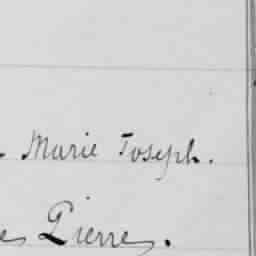 Marie Joseph.
Pierre.